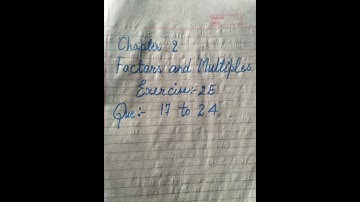 Chapter 2
Factors and Multiples
Exercise:- 25
Que:- 17 to 24